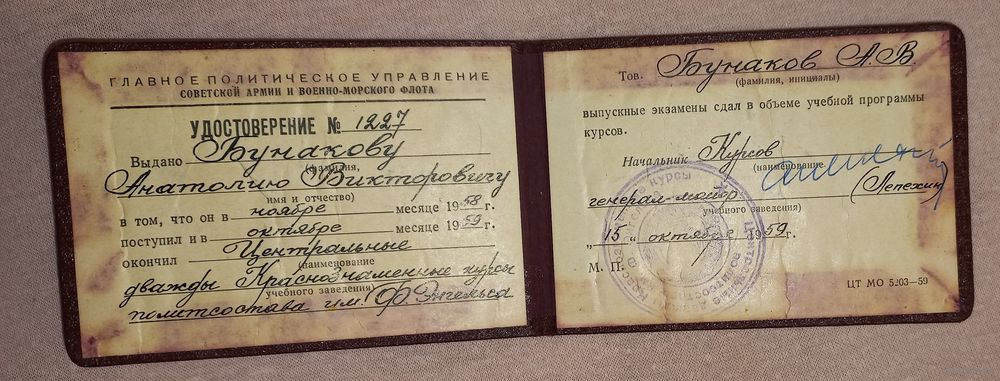 ГЛАВНОЕ ПОЛИТИЧЕСКОЕ УПРАВЛЕНИЕ
СОВЕТСКОЙ АРМИИ И ВОЕННО-МОРСКОГО ФЛОТА
УДОСТОВЕРЕНИЕ № 1227
Выдано Бунакову
(фамилия,
Анатолию Викторовичу
имя и отчество)
в том, что он в ноябре месяце 1958 г.
поступил и в октябре месяце 1959 г.
окончил Центральные
(наименование
дважды Краснознаменные курсы
учебного заведения)
политсостава им. Ф. Энгельса
Тов. Бунаков А.В
(фамилия, инициалы)
выпускные экзамены сдал в объеме учебной программы
курсов.
Начальник Курсов
(наименование
генерал-майор (Лепехин)
учебного заведения)
„15„ октября 1959г.
М. П.
ЦТ МО 5203—59